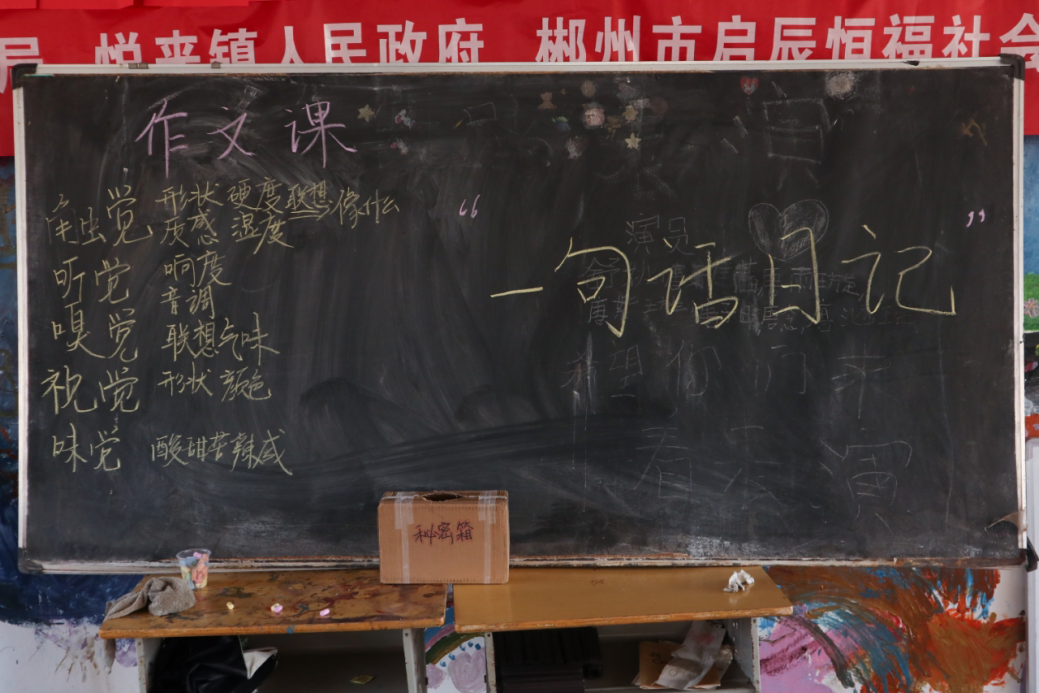 悦来镇人民政府 郴州市启辰恒福社会
作文课
触觉 形状 硬度 联想像什么
质感 湿度
听觉 响度
音调
嗅觉 联想气味
视觉 形状 颜色
味觉 酸甜苦辣咸
“一句话日记”
演员
希望你们来
看表演
秘密箱